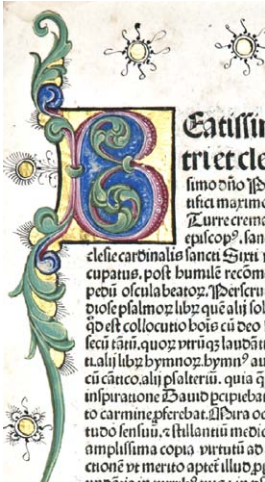 Beatissi
tri et cle
simo dño P
tifici maxime
Turrecreme
episcopꝰ. san
clesie cardinalis sancti Sixti
cupatus. post humilē recōm
pedū oscula beatoꝝ. Perscru
diose psalmoꝝ libꝝ quē alij sol
qd est collocutio hois cū deo
secū tātū. quoꝝ vtrūqꝫ laudāti
ti. alij libꝝ hymnoꝝ. hymnꝰ au
cū cātico. alij psalteriū. quia q̄
inspiratione Dauid pcipiebat
to carmine pferebat. Mira oc
tudo sensuū. ⁊ stillantiū medic
amplissima copia virtutū ad
ctionē vt merito aptet illud